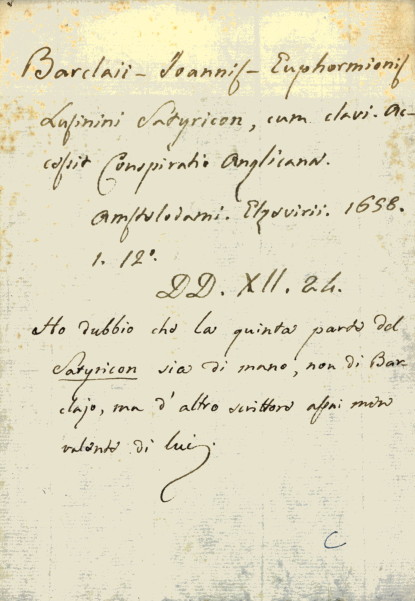 Barclaii - Joannis - Euphormionis
Lusinini Satyricon, cum clavi. Ac-
cessit Conspiratio Anglicana.
Amstelodami. Elzevirii. 1658.
1. 12°.
DD. XII. 24.
Ho dubbio che la quinta parte del
Satyricon sia di mano, non di Bar-
clajo, ma d'altro scrittore assai men
valente di lui.
C